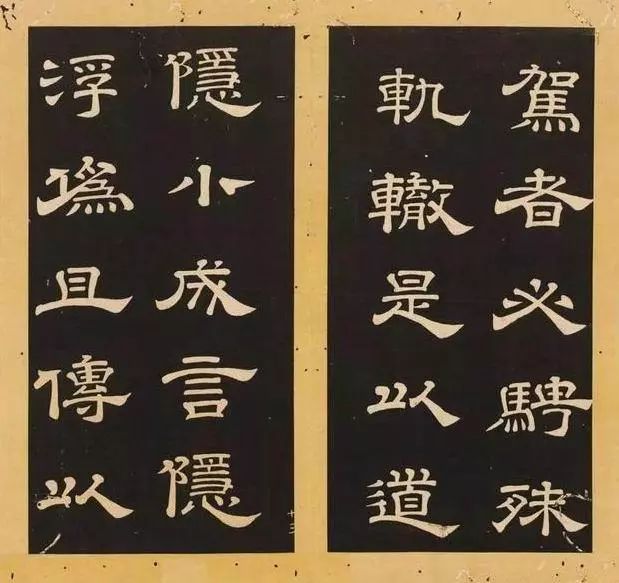 駕者必騁殊
軌轍是以道
隱小成言隱
浮偽且傳以
十三